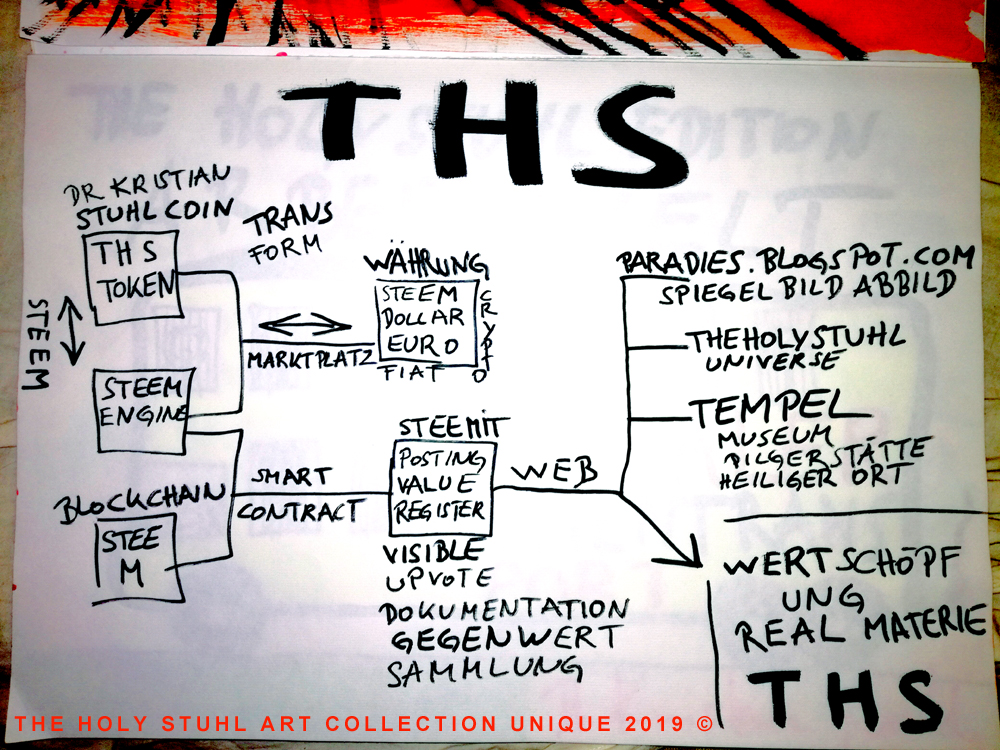 THS
DR KRISTIAN
STUHL COIN
THS
TOKEN
STEEM
TRANS
FORM
STEEM
ENGINE
BLOCKCHAIN
STEE
M
WÄHRUNG
STEEM
DOLLAR
EURO
CRYPTO
FIAT
MARKTPLATZ
SMART
CONTRACT
STEEMIT
POSTING
VALUE
REGISTER
VISIBLE
UPVOTE
DOKUMENTATION
GEGENWERT
SAMMLUNG
WEB
PARADIES.BLOGSPOT.COM
SPIEGELBILD ABBILD
THEHOLYSTUHL
UNIVERSE
TEMPEL
MUSEUM
PILGERSTÄTTE
HEILIGER ORT
WERTSCHÖPF
UNG
REAL MATERIE
THS
THE HOLY STUHL ART COLLECTION UNIQUE 2019 ©